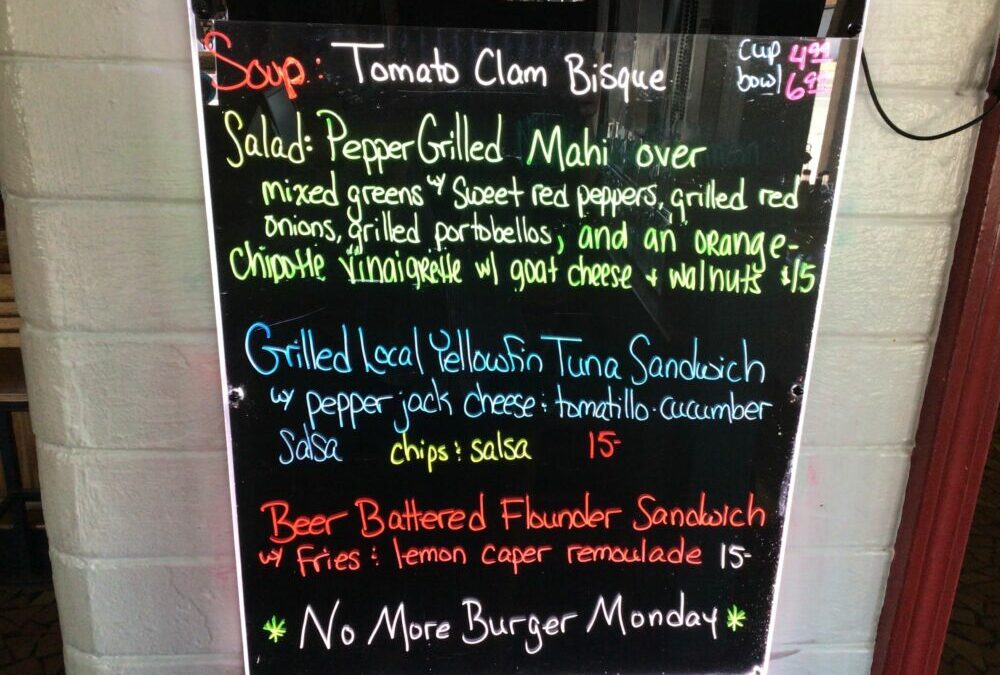 Soup: Tomato Clam Bisque cup 4.99
bowl 6.95
Salad: Pepper Grilled Mahi over
mixed greens w/ sweet red peppers, grilled red
onions, grilled portobellos, and an orange-
chipotle vinaigrette w/ goat cheese + walnuts $15
Grilled Local Yellowfin Tuna Sandwich
w/ pepper jack cheese : tomatillo-cucumber
salsa chips : salsa 15-
Beer Battered Flounder Sandwich
w/ Fries : lemon caper remoulade 15-
* No More Burger Monday *